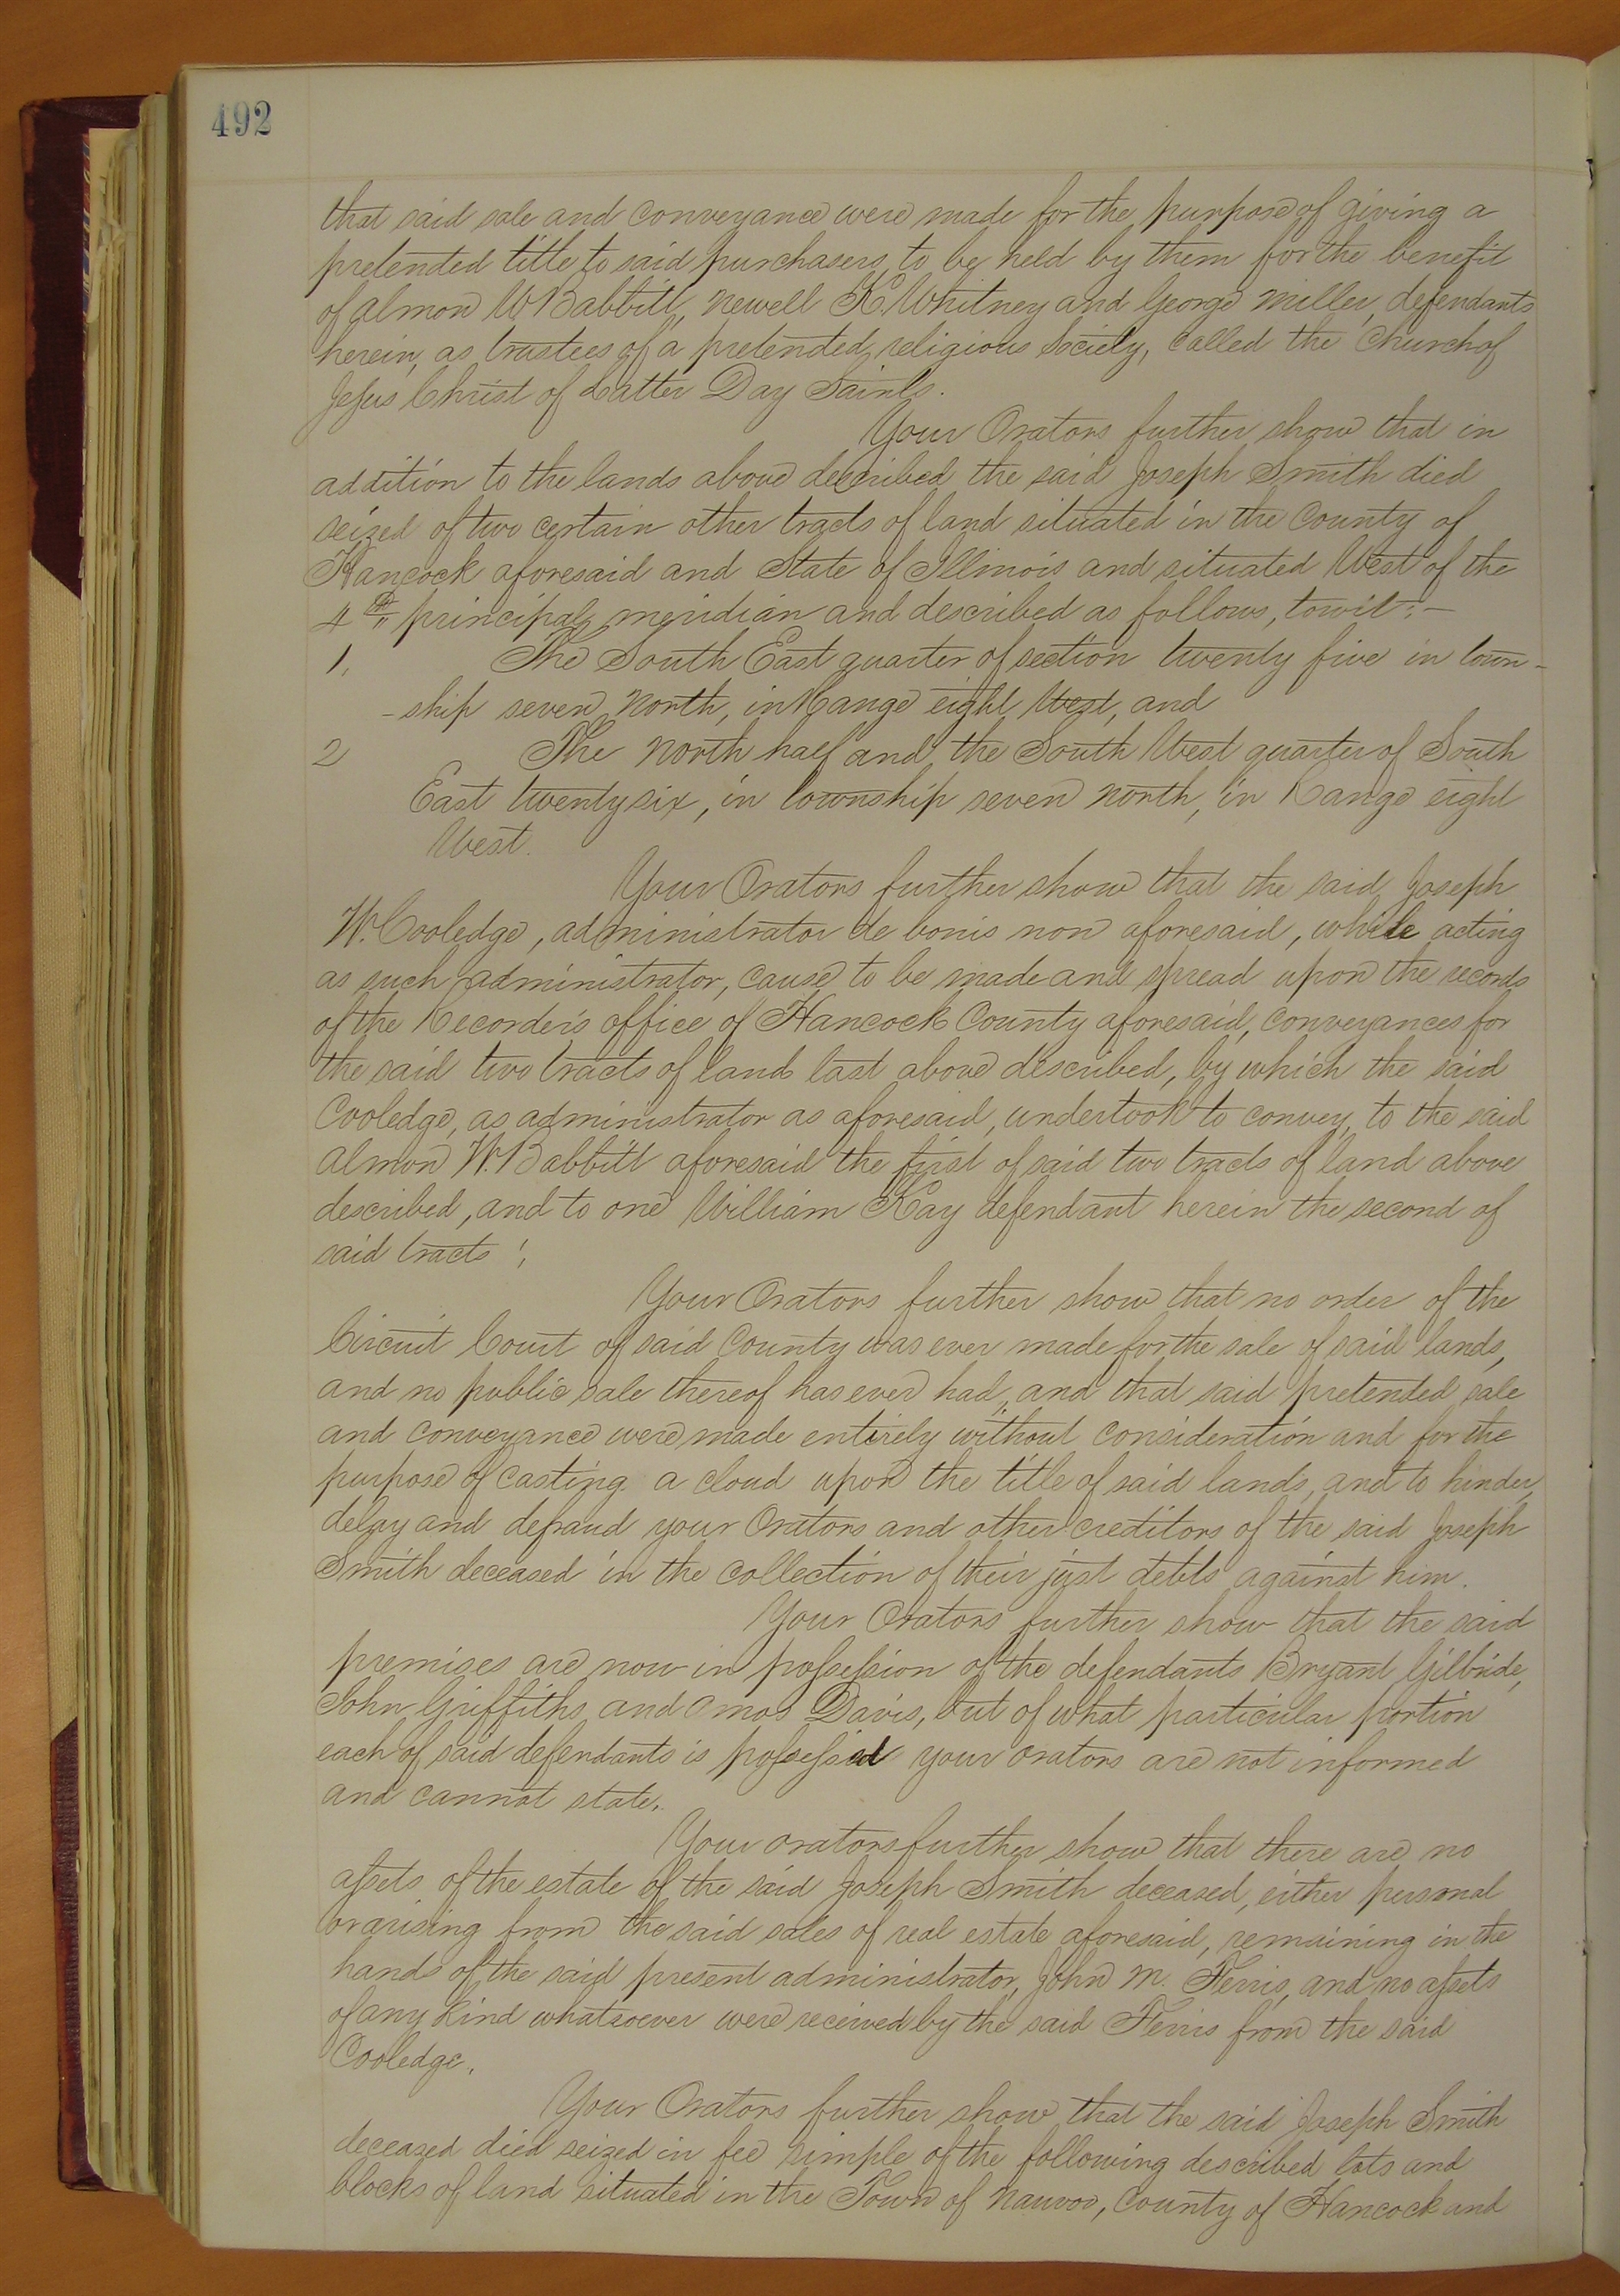 492
that said sale and conveyance were made for the purpose of giving a
pretended title to said purchasers, to be held by them for the benefit
of Almon W Babbitt, Newell K. Whitney and George Miller, defendants
herein, as trustees of a pretended religious Society, called the Church of
Jesus Christ of Latter Day Saints.
Your Orators further show that in
addition to the lands above described the said Joseph Smith died
seized of two certain other tracts of land situated in the County of
Hancock aforesaid and State of Illinois and situated West of the
4th principal meridian and described as follows, towit:—
1. The South East quarter of section twenty five in town-
-ship seven North, in Range eight West, and
2 The North half and the South West quarter of South
East twenty six, in township seven North, in Range eight
West.
Your Orators further show that the said Joseph
W. Cooledge, administrator de bonis non aforesaid, while acting
as such administrator, cause to be made and spread upon the records
of the Recorder's office of Hancock County aforesaid, conveyances for
the said two tracts of land last above described, by which the said
Cooledge, as administrator as aforesaid, undertook to convey, to the said
Almon W. Babbitt aforesaid the first of said two tracts of land above
described, and to one William Kay defendant herein the second of
said tracts;
Your Orators further show that no order of the
Circuit Court of said County was ever made for the sale of said lands,
and no public sale thereof has ever had, and that said pretended sale
and conveyance were made entirely without consideration and for the
purpose of casting a cloud upon the title of said lands, and to hinder,
delay and defraud your Orators and other creditors of the said Joseph
Smith deceased in the collection of their just debts against him.
Your Orators further show that the said
premises are now in possession of the defendants Bryant Gilbride,
John Griffiths and Amos Davis, but of what particular portion
each of said defendants is possessed your orators are not informed
and cannot state.
Your orators further show that there are no
assets of the estate of the said Joseph Smith deceased, either personal
or arising from the said sales of real estate aforesaid, remaining in the
hands of the said present administrator, John M. Ferris, and no assets
of any kind whatsoever were received by the said Ferris from the said
Cooledge.
Your Orators further show that the said Joseph Smith
deceased died seized in fee simple of the following described lots and
blocks of land situated in the Town of Nauvoo, County of Hancock and